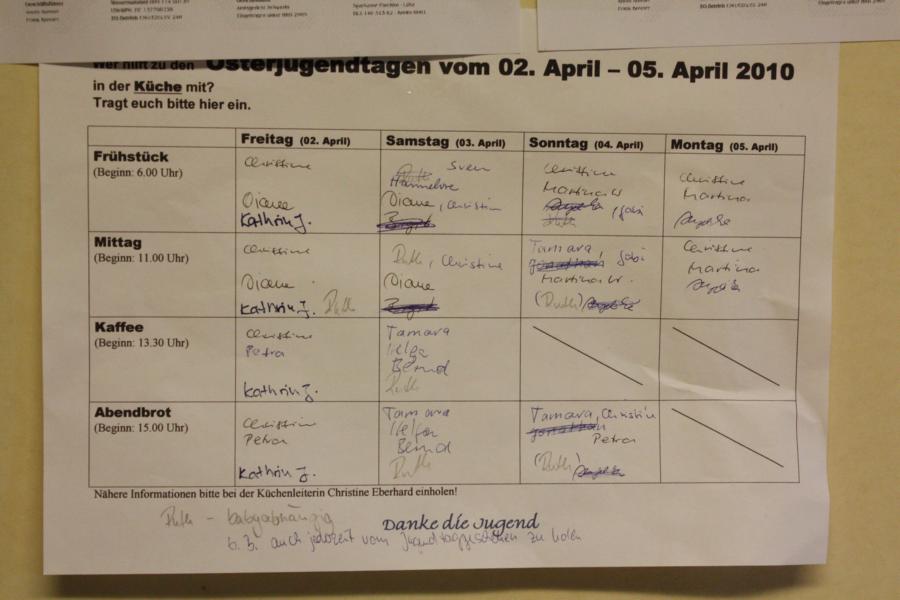 Wer hilft zu den Osterjugendtagen vom 02. April – 05. April 2010
in der Küche mit?
Tragt euch bitte hier ein.
Freitag (02. April) Samstag (03. April) Sonntag (04. April) Montag (05. April)
Frühstück
(Beginn: 6.00 Uhr)
Christine
Diane
Kathrin J.
Sven
Hannelore
Diane, Christin
Christine
Martina W
Christine
Martina
Angela
Mittag
(Beginn: 11.00 Uhr)
Christine
Diane
Kathrin J. Ruth
Ruth, Christine
Diane
Tamara,
Martina W.
(Ruth)
Christine
Martina
Angela
Kaffee
(Beginn: 13.30 Uhr)
Christine
Petra
Kathrin J.
Tamara
Helga
Bernd
Ruth
Abendbrot
(Beginn: 15.00 Uhr)
Christine
Petra
Kathrin J.
Tamara
Bernd
Ruth
Tamara, Christin
Petra
(Ruth)
Nähere Informationen bitte bei der Küchenleiterin Christine Eberhard einholen!
Ruth - babyabhängig
Danke die Jugend
auch jederzeit vom zu holen